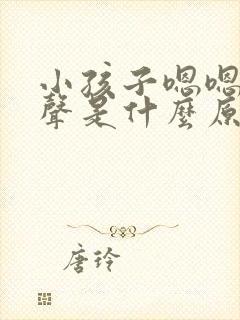 小孩子嗯嗯
聲是什麼原
唐玲